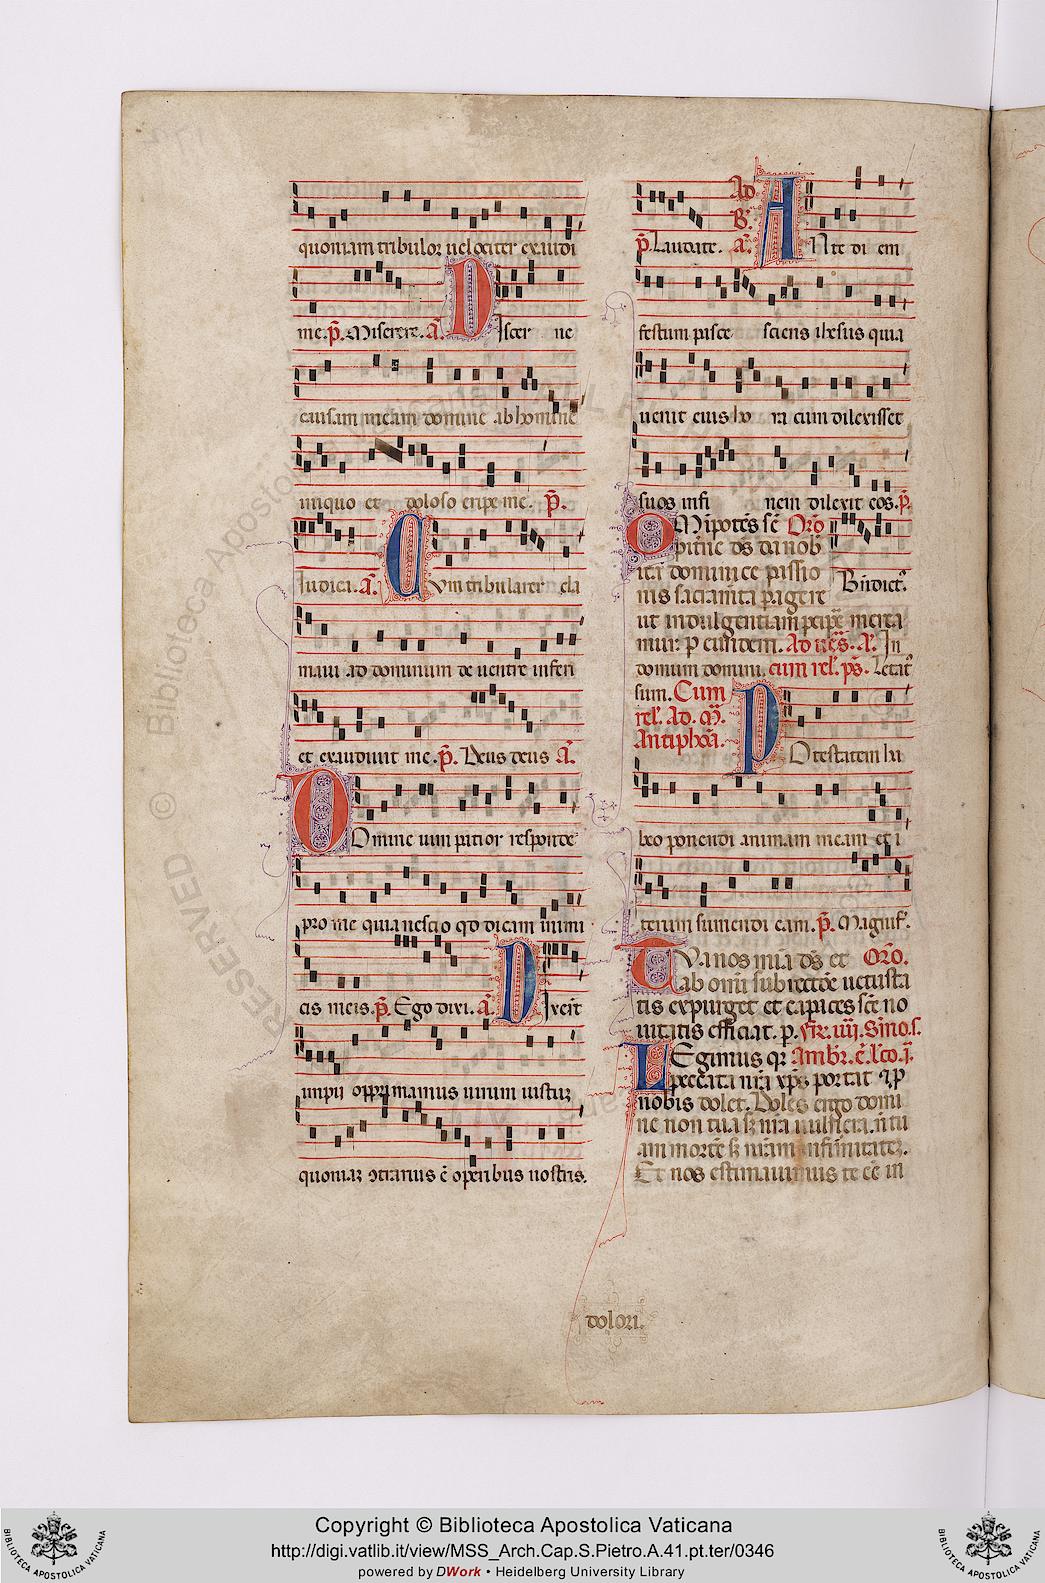 quoniam tribulor uelociter exaudi
me. p̄. Miserere. a̅. Discer ne
causam meam domine ab homine
iniquo et doloso eripe me. p̄.
Iudica. a̅. Cum tribularer cla
maui ad dominum de uentre inferi
et exaudiuit me. p̄. Deus deus a̅.
Domine uim patior responde
pro me quia nescio qd dicam inimi
cis meis. p̄. Ego dixi. a̅. Dixerūt
impii opprimamus uirum iustuz
quoniaz ɔtrarius ē operibus nostris.
Ad
B̅.
p̄. Laudate. a̅. Ante di em
festum pasce sciens ihesus quia
uenit eius ho ra cum dilexisset
suos infi nem dilexit eos. p̄.
Omipotēs sē Orō
pitne ds da nob
ita dominice passio Bn̄dict᷑.
nis sacram̄ta pagere
ut indulgentiam peipe merea
mur. p eundem. Ad ues. a̅. In
domum domini. cum rel. ps. Letat᷑
sum. Cum
rel. Ad. M̅.
Antiphōa. Potestatem ha
beo ponendi animam meam et i
terum sumendi eam. p̄. Magnif᷑.
Tua nos mia ds et Orō.
ab omi subrectōe uetusta
tis expurget et capaces scē no
uitatis efficiat. p. fīr. iiij. Smo. s.
Legimus qr Ambr. ē. lc̄o. j̄.
peccata nr̄a xps portat ⁊ p
nobis dolet. Doles ergo domi
ne non tua sz nr̄a uulnera. n̄ tu
am mortē sz nr̄am infirmitatez.
Et nos estimauimus te eē in
dolori.
Copyright © Biblioteca Apostolica Vaticana
http://digi.vatlib.it/view/MSS_Arch.Cap.S.Pietro.A.41.pt.ter/0346
powered by DWork • Heidelberg University Library
BIBLIOTECA APOSTOLICA VATICANA
BIBLIOTECA APOSTOLICA VATICANA